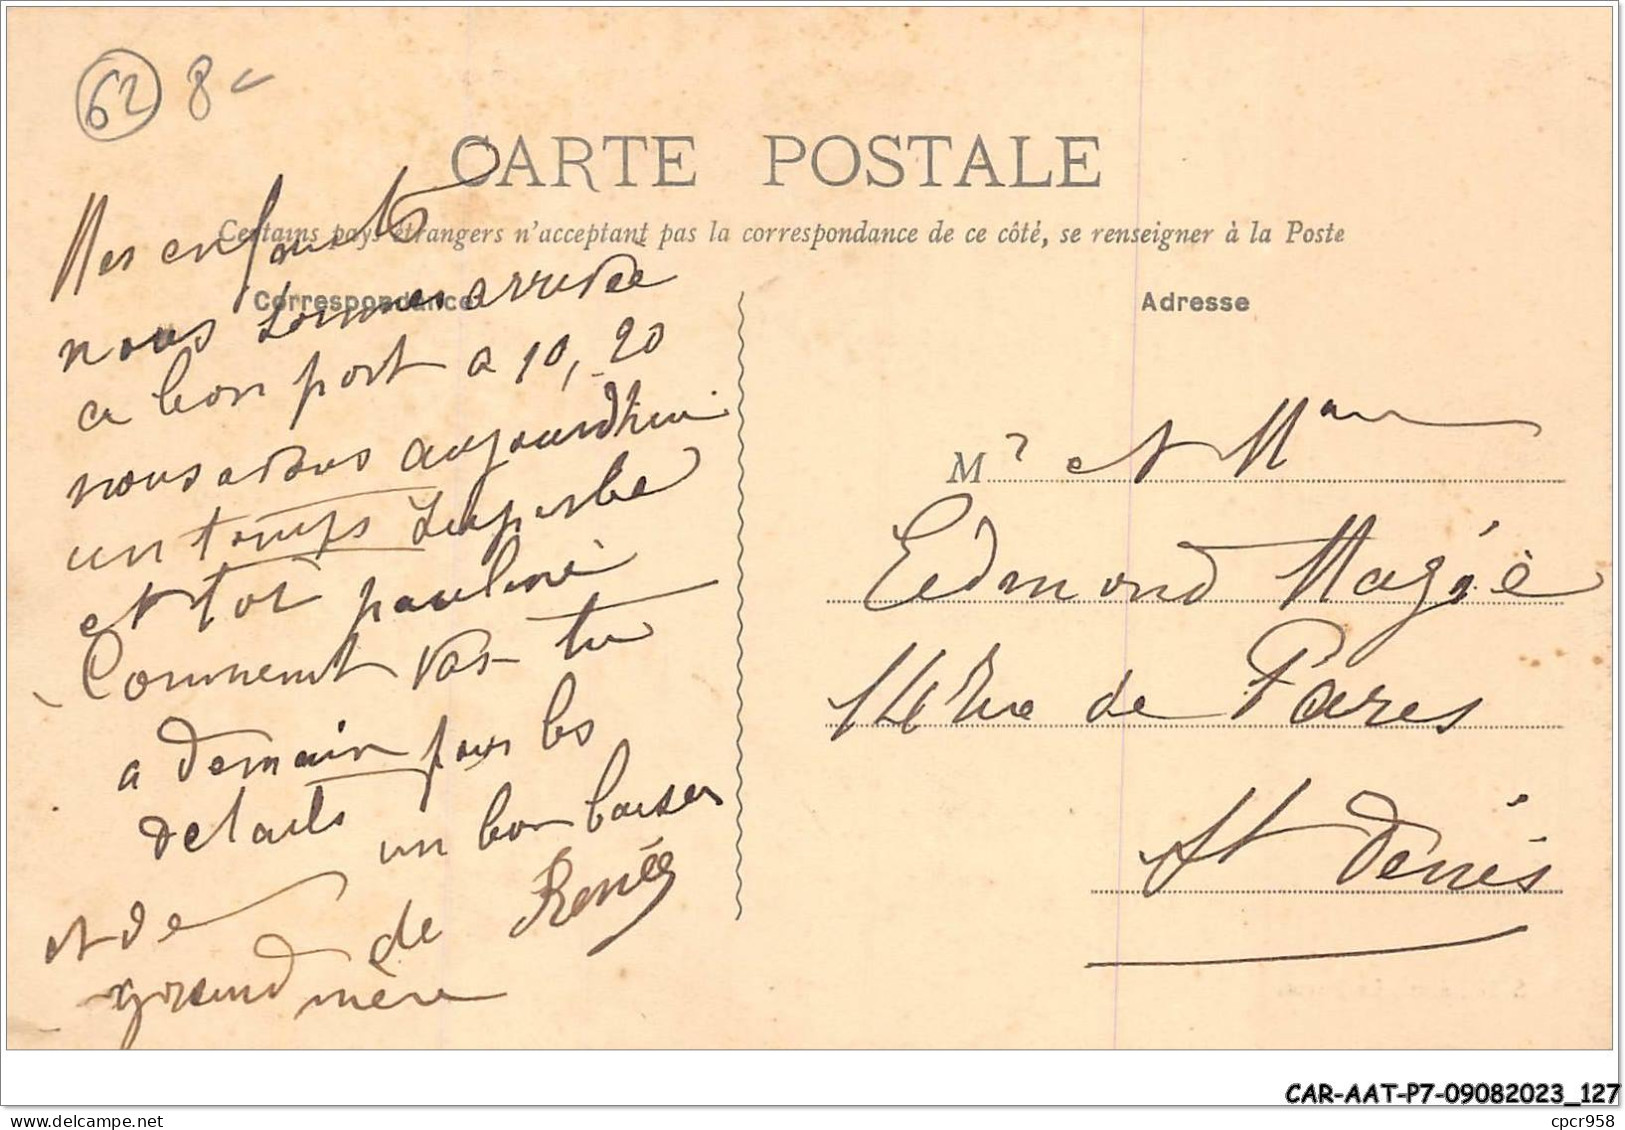 62 8
CARTE POSTALE
Certains pays étrangers n'acceptant pas la correspondance de ce côté, se renseigner à la Poste
Correspondance
Mes enfants
nous sommes arrivée
a bon port a 10,20
nous avons aujourdhui
un temps superbe
et toi pauline
Comment vas-tu
a demain pour les
details
un bon baiser
de Renée
et de
grand mère
Adresse
Mr et Mme
Edmond Magéé
14 Rue de Pares
St Denis
CAR-AAT-P7-09082023_127
cpcr958